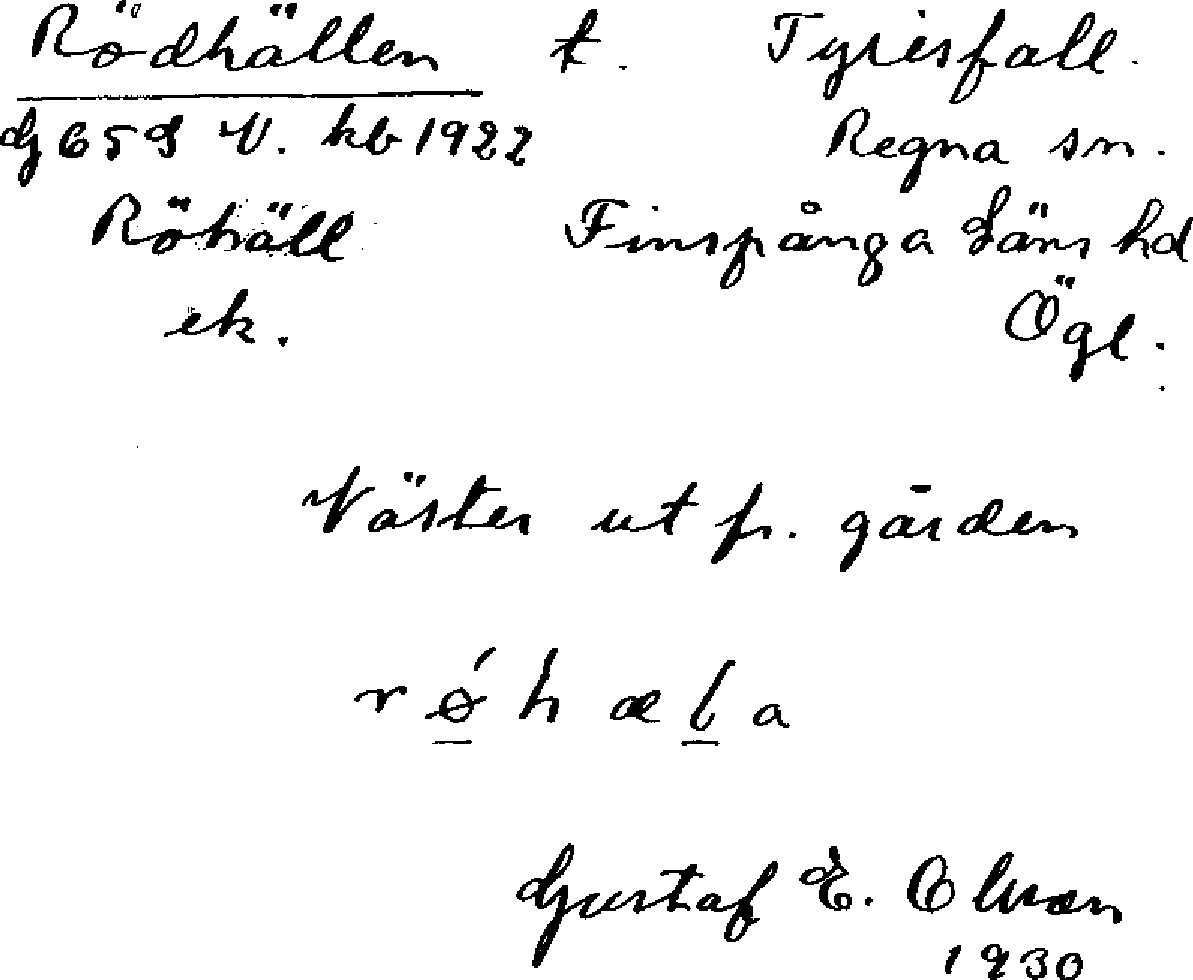 Rödhällen t. Tyrisfall.
dg 65 9 V. kb 1922 Regna sn.
Röhäll Finspånga Läns hd
ek. Ögl.
Väster ut fr. gården
r ǿ h æ l a
Gustaf E. Olson
1930